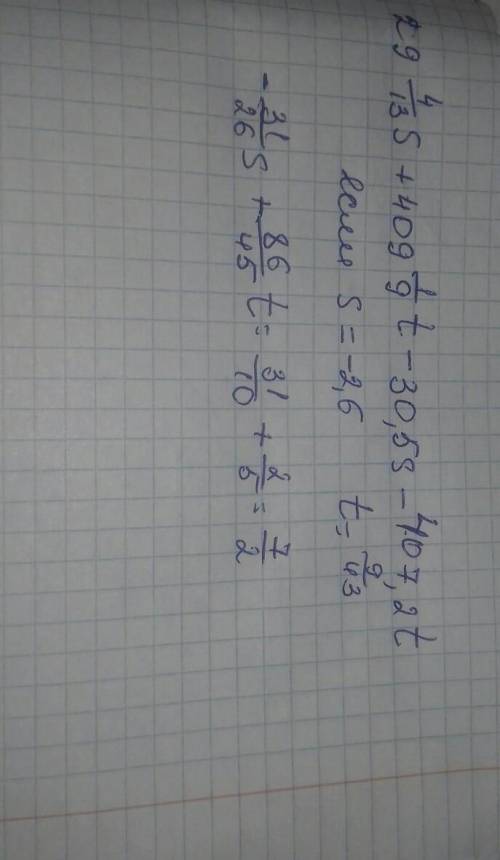 29 4/13 S + 409 1/9 t - 30,5s - 407,2t
если s = -2,6 t = 9/43
- 31/26 S + 86/45 t = 31/10 + 2/5 = 7/2